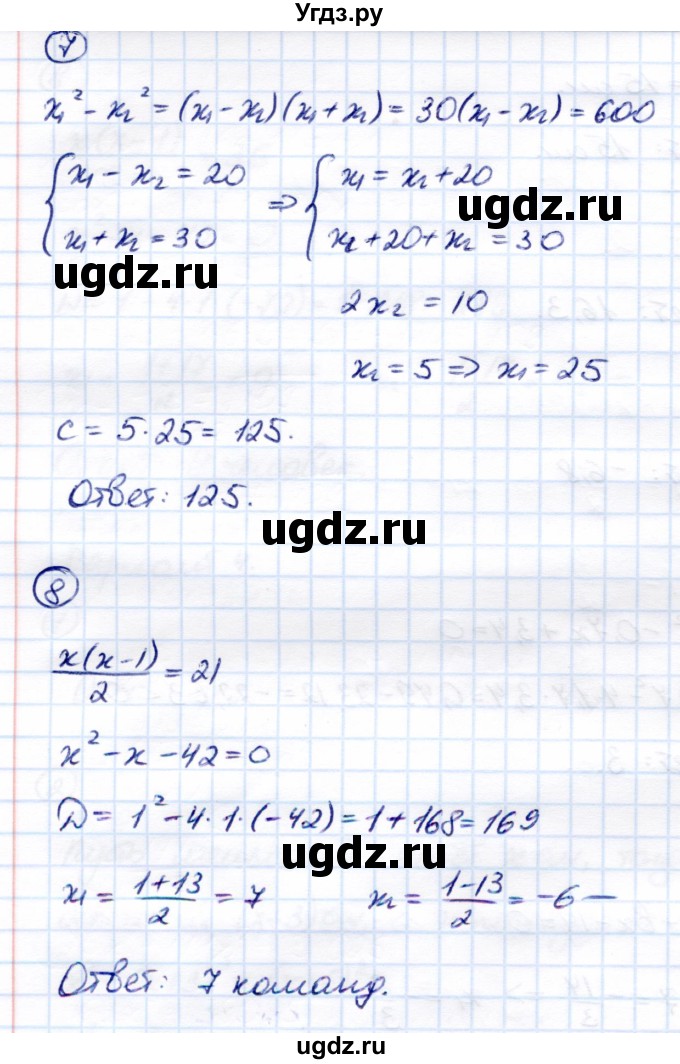 Угдз.ру
7
x₁² - x₂² = (x₁ - x₂)(x₁ + x₂) = 30(x₁ - x₂) = 600
{ x₁ - x₂ = 20 ⇒ { x₁ = x₂ + 20
ugdz.ru
x₁ + x₂ = 30 x₂ + 20 + x₂ = 30
ugdz.ru
2x₂ = 10
x₂ = 5 ⇒ x₁ = 25
c = 5·25 = 125.
Ответ: 125.
ugdz.ru
8
x(x-1)/2 = 21
x² - x - 42 = 0
D = 1² - 4·1·(-42) = 1 + 168 = 169
ugdz.ru
x₁ = (1+13)/2 = 7 x₂ = (1-13)/2 = -6 —
Ответ: 7 команд.